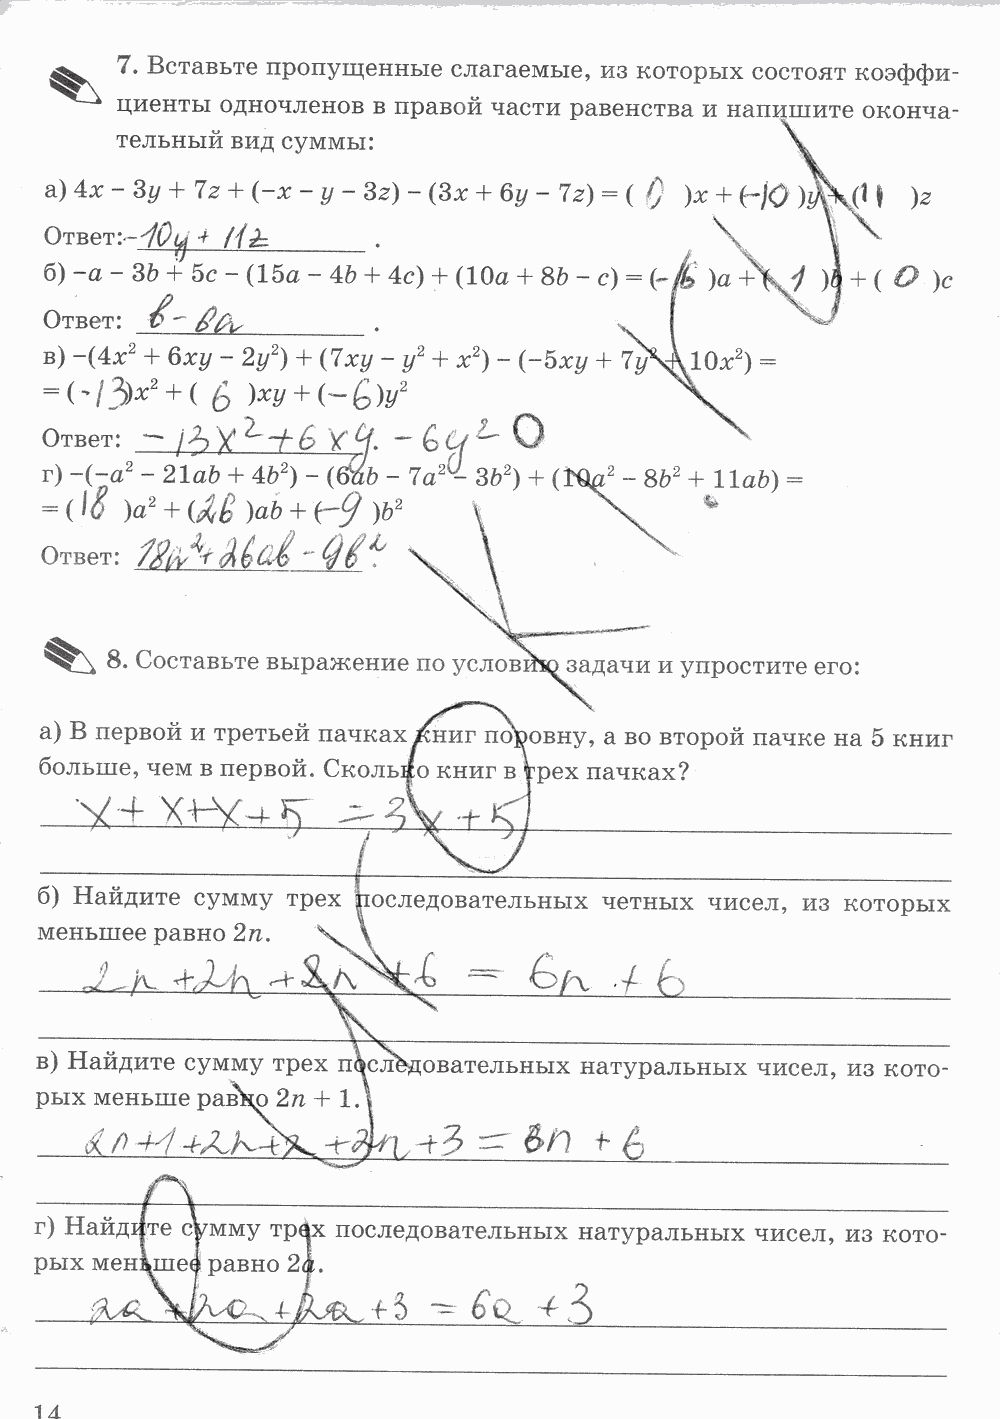 7. Вставьте пропущенные слагаемые, из которых состоят коэффи-
циенты одночленов в правой части равенства и напишите оконча-
тельный вид суммы:
а) 4x − 3y + 7z + (−x − y − 3z) − (3x + 6y − 7z) = ( 0 )x + (−10 )y + (11 )z
Ответ: −10y + 11z .
б) −a − 3b + 5c − (15a − 4b + 4c) + (10a + 8b − c) = (− 6 )a + ( 1 )b + ( 0 )c
Ответ: в − 6a .
в) −(4x² + 6xy − 2y²) + (7xy − y² + x²) − (−5xy + 7y² + 10x²) =
= (−13)x² + ( 6 )xy + (−6)y²
Ответ: −13x² + 6xy. − 6y²
г) −(−a² − 21ab + 4b²) − (6ab − 7a² − 3b²) + (10a² − 8b² + 11ab) =
= (18 )a² + (26 )ab + (−9 )b²
Ответ: 18a² + 26ab − 9b² .
8. Составьте выражение по условию задачи и упростите его:
а) В первой и третьей пачках книг поровну, а во второй пачке на 5 книг
больше, чем в первой. Сколько книг в трех пачках?
x + x + x + 5 = 3x + 5
б) Найдите сумму трех последовательных четных чисел, из которых
меньшее равно 2n.
2n + 2n + 2n + 6 = 6n + 6
в) Найдите сумму трех последовательных натуральных чисел, из кото-
рых меньше равно 2n + 1.
2n + 1 + 2n + 2 + 2n + 3 = 6n + 6
г) Найдите сумму трех последовательных натуральных чисел, из кото-
рых меньшее равно 2a.
2a + 2a + 2a + 3 = 6a + 3
14